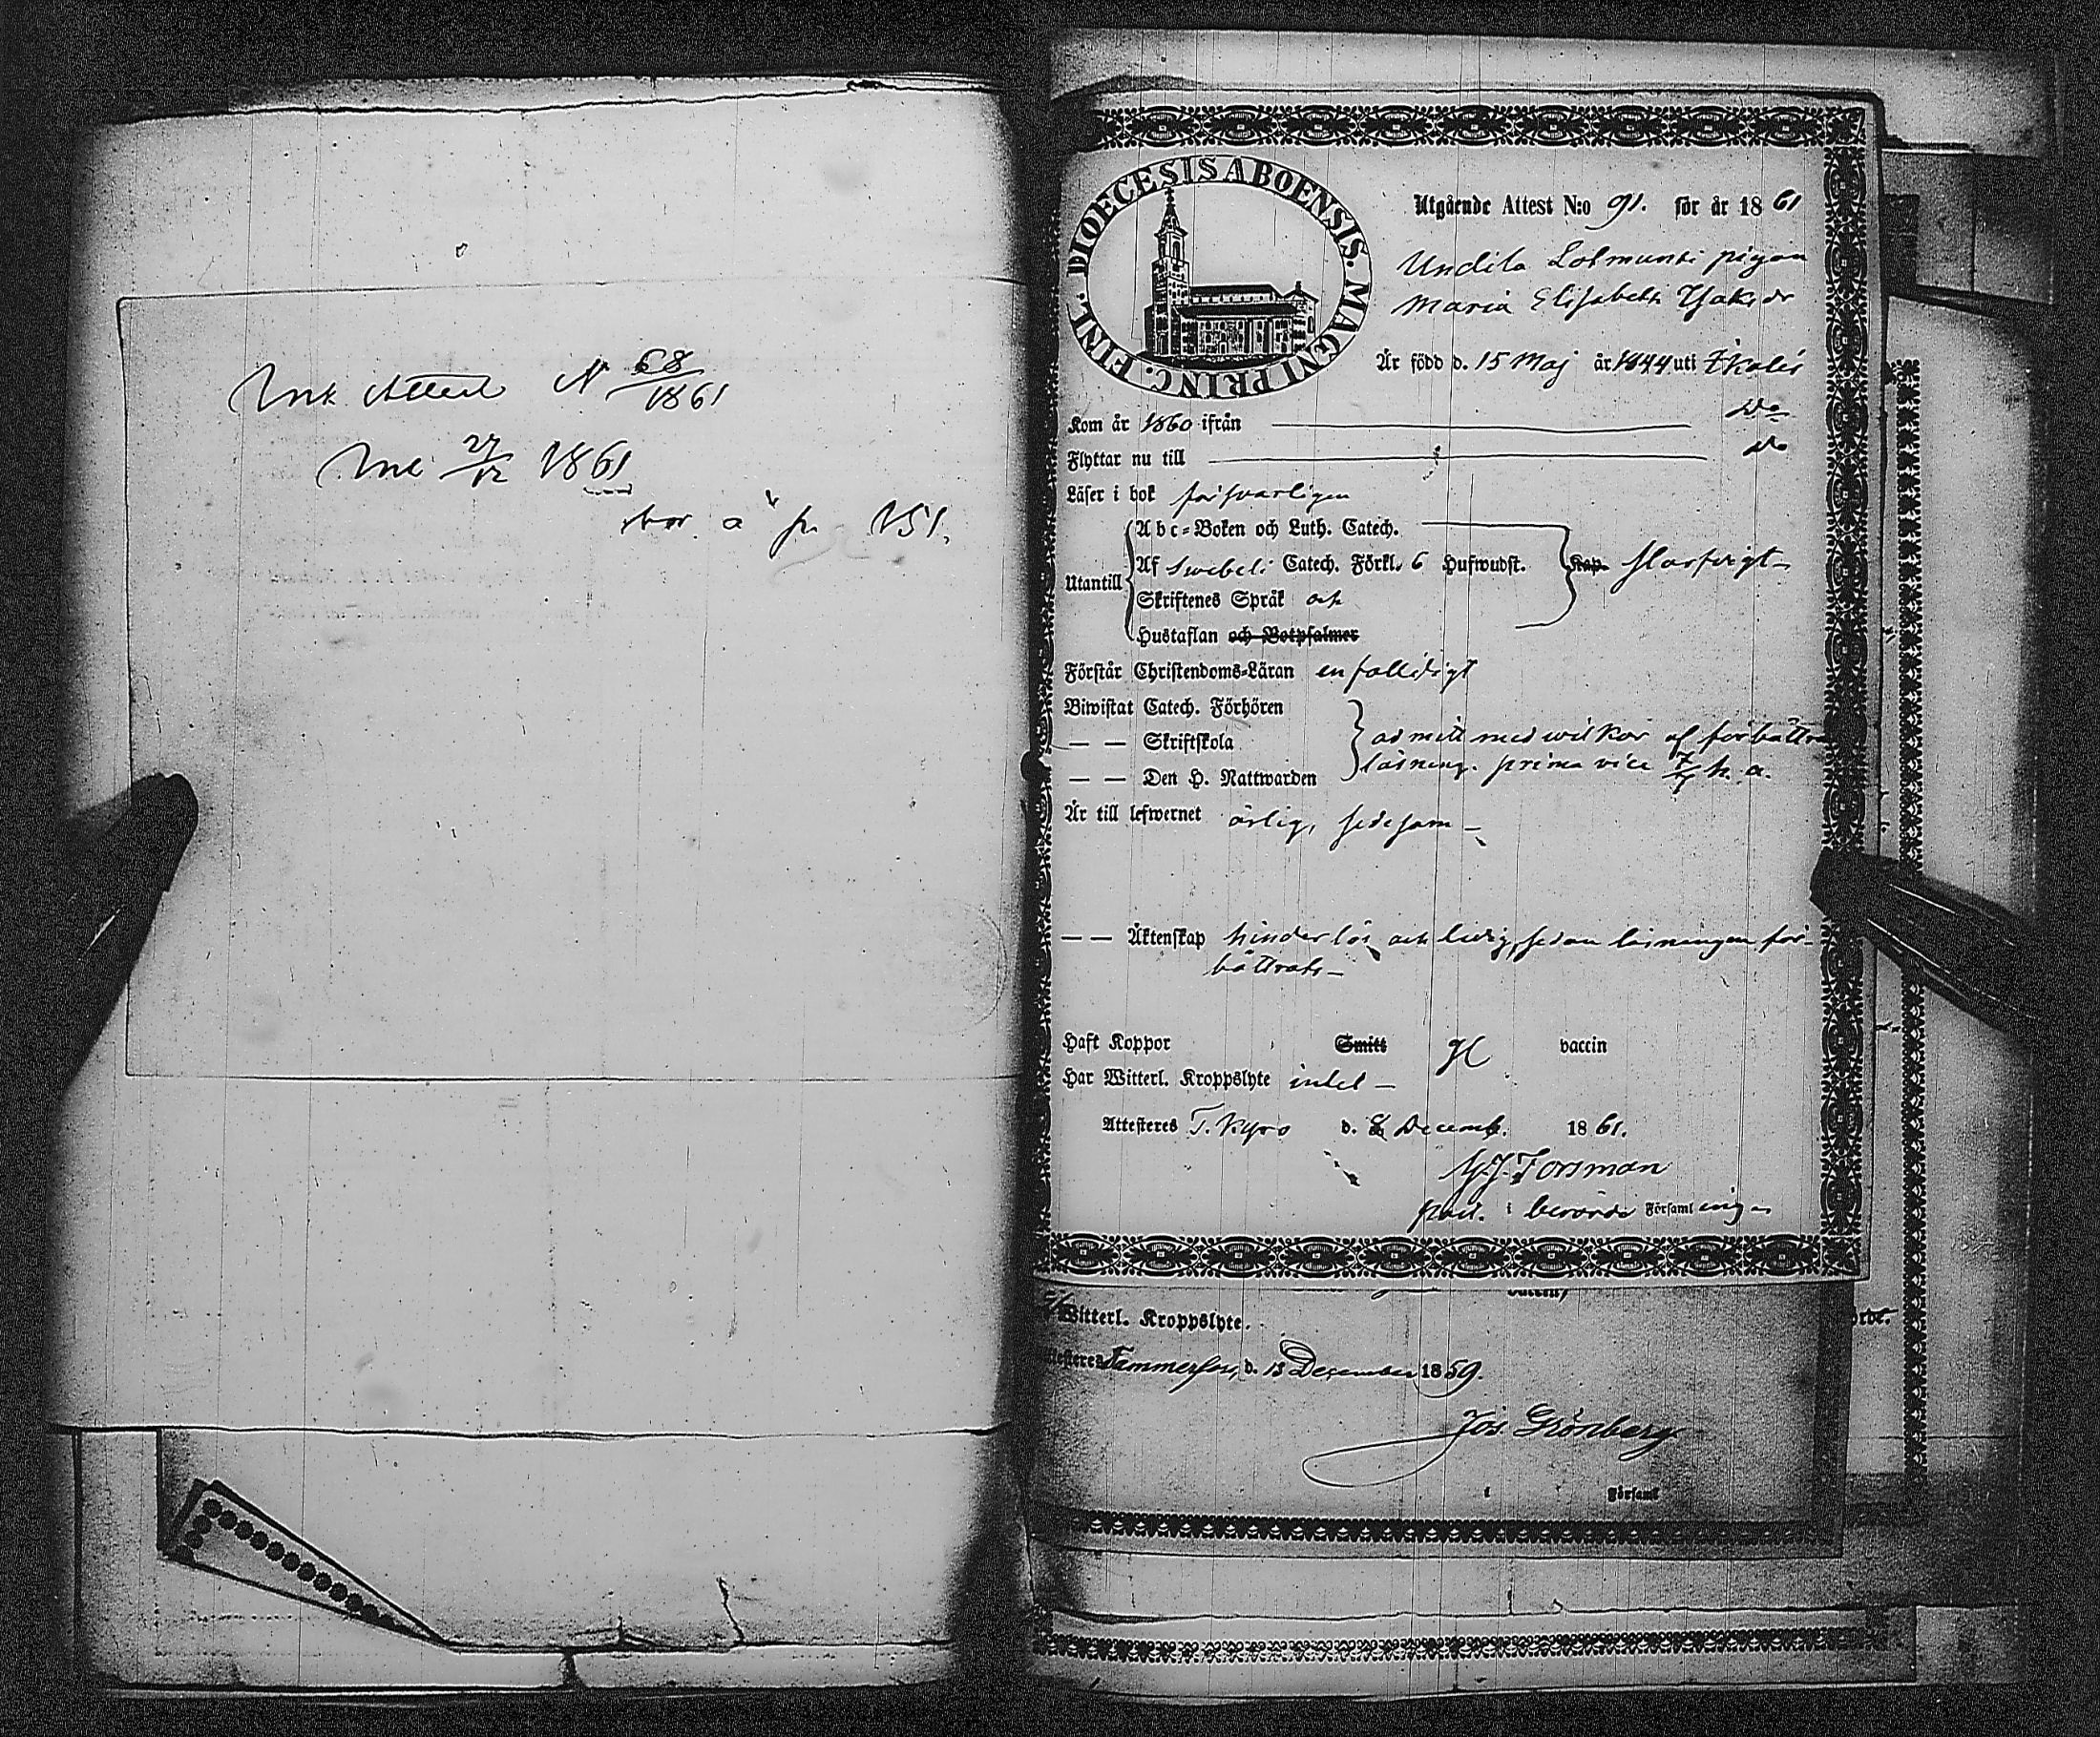 Ink Attest N 68/1861
Ink 27/12 1861
bor å p. 151.
DIOECESIS ABOENSIS. MAGNI PRINC. FINL.
Utgående Attest N:o 91. för år 1861
pigan
Maria Elisabeth Isaksdr
Är född d. 15 Maj år 1844 uti Ikalis
Kom år 1860 ifrån do
Flyttar nu till do
Läser i bok försvarligen
Abc-Boken och Luth. Catech.
Utantill Af Swebeli Catech. Förkl. 6 Hufwudst. Kap.
Skriftenes Språk och
Hustaflan och Botpsalmer
Förstår Christendoms-Läran enfalldigt
Biwistat Catech. Förhören
— — Skriftskola admitt med wilkor af förbättra
— — Den H. Nattwarden läsning. prima vice h. a.
Är till lefwernet ärlig, sedesam —
— — Äktenskap hinderlös och ledig, sedan läsningen för-
bättrats —
Haft Koppor Smitt vaccin
Har Witterl. Kroppslyte intet —
Attesteres T. Kyro d. 8 Decemb. 1861.
Forsman
past. i berörde Församling
Witterl. Kroppslyte.
Tammerfors, d. 13 December 1859.
Jos. Grönberg
i Församl